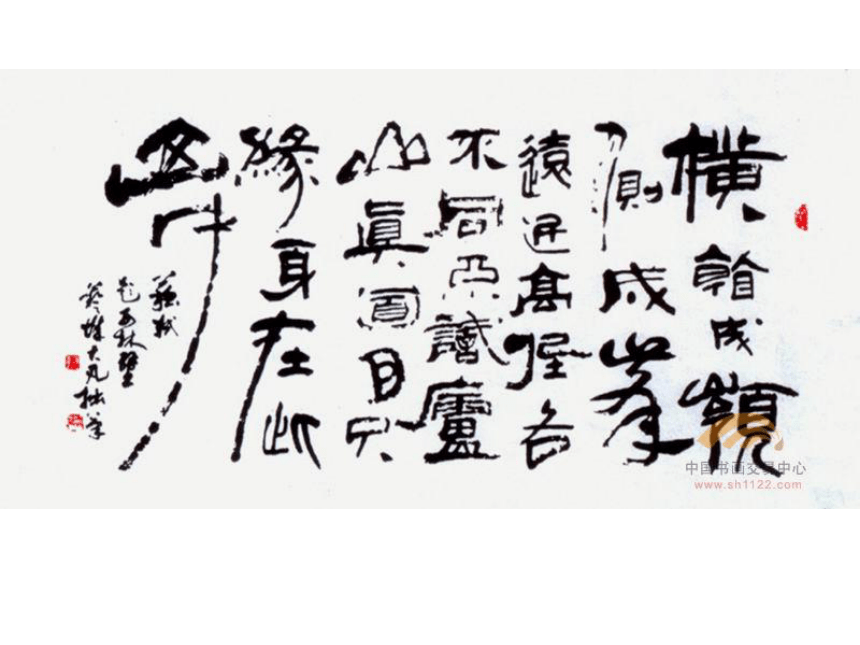 橫看成嶺
側成峯
遠近高低各
不同不識廬
山眞面目只
緣身在此
山中
蘇軾
題西林壁
拙筆
中国书画交易中心
www.sh1122.com